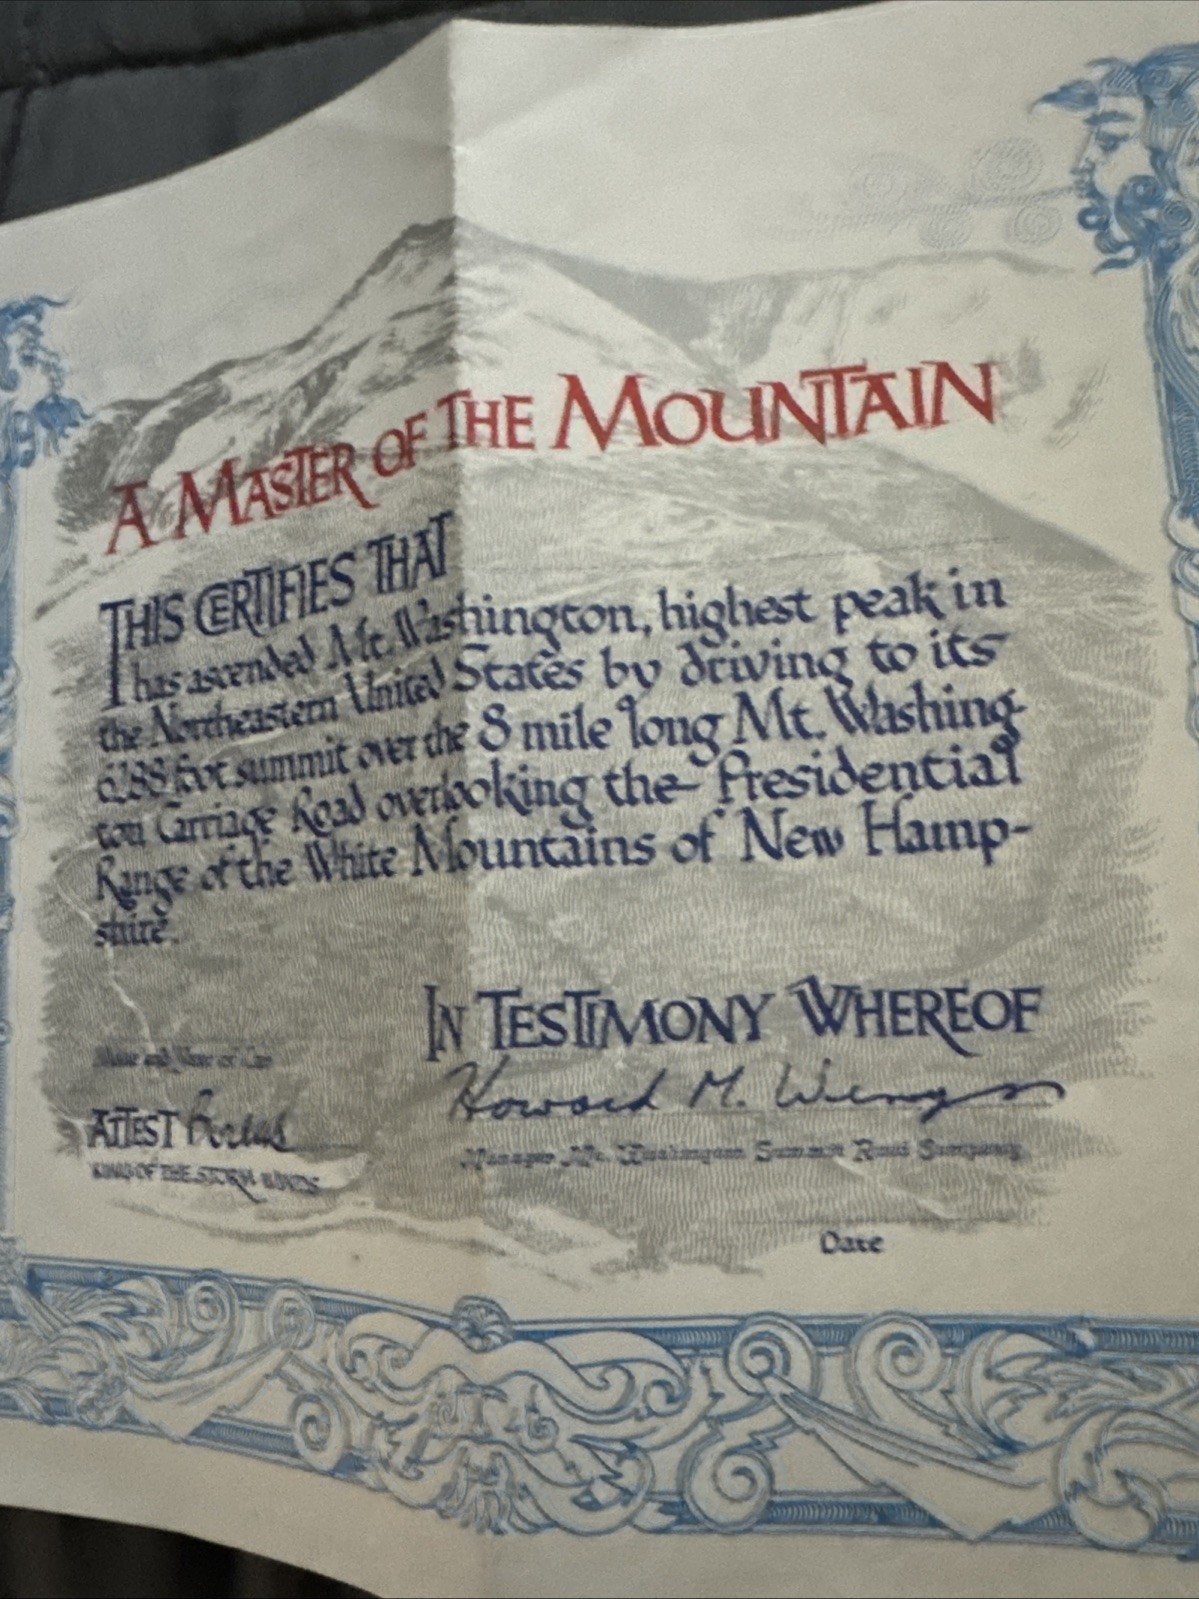 A MASTER OF THE MOUNTAIN
THIS CERTIFIES THAT
has ascended Mt. Washington, highest peak in
the Northeastern United States by driving to its
6288 foot summit over the 8 mile long Mt. Washing-
ton Carriage Road overlooking the Presidential
Range of the White Mountains of New Hamp-
shire.
IN TESTIMONY WHEREOF
Make and Year of Car
Howard M. Wemyss
ATTEST Boreas
Manager Mt. Washington Summit Road Company
KING OF THE STORM WINDS
Date